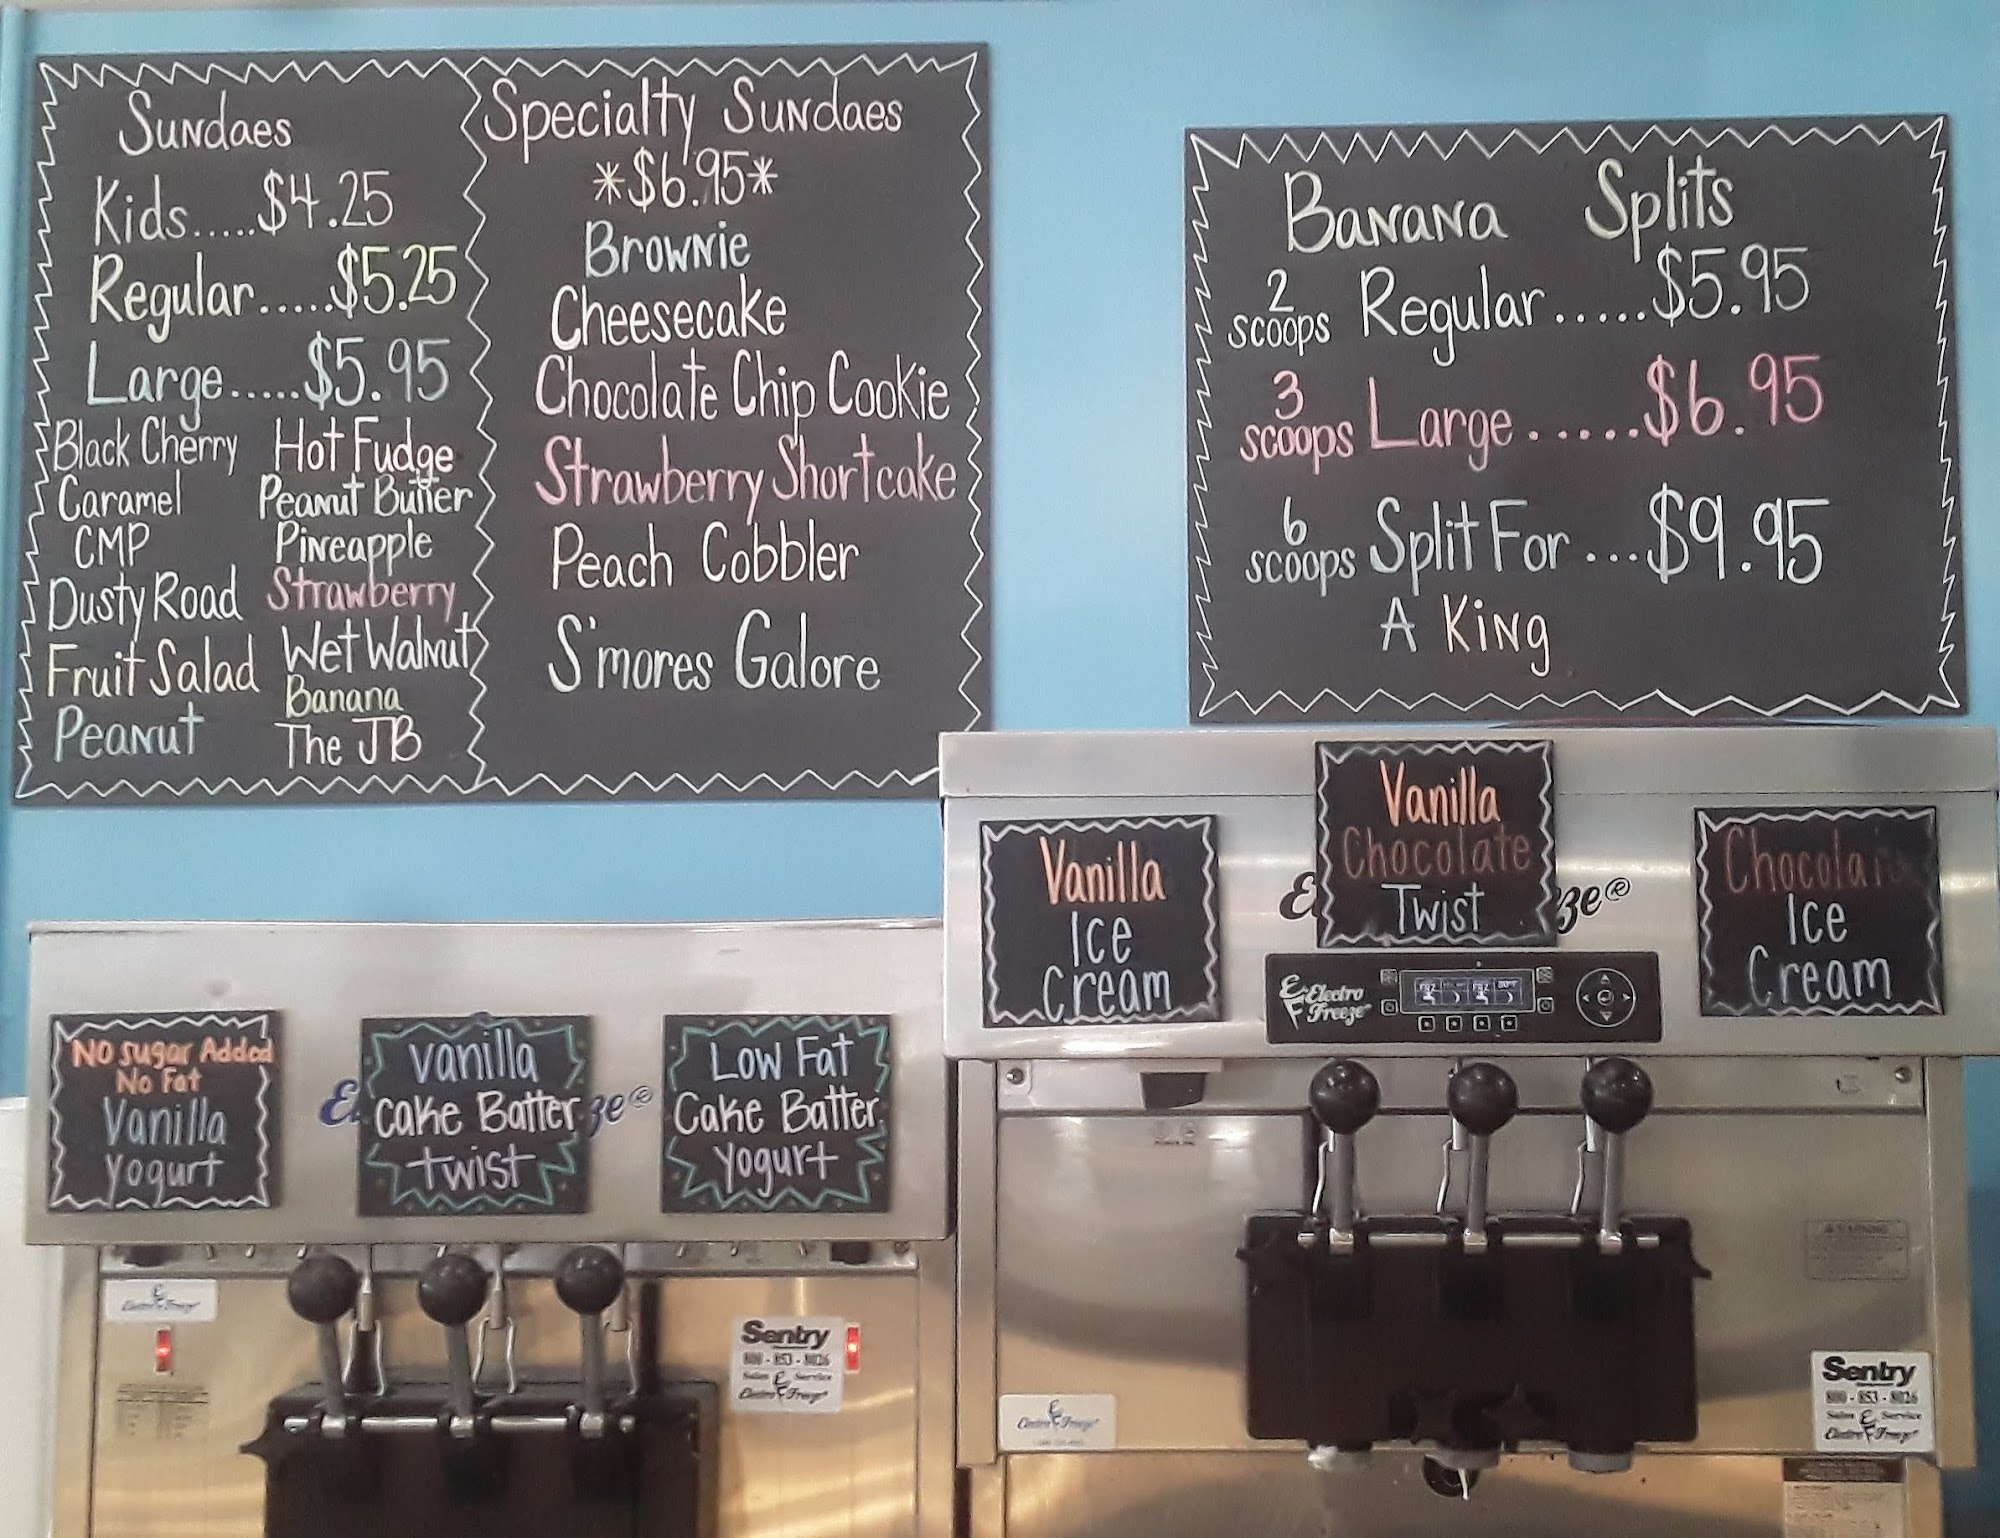 Sundaes
Kids.....$4.25
Regular.....$5.25
Large.....$5.95
Black Cherry
Caramel
CMP
Dusty Road
Fruit Salad
Peanut
Hot Fudge
Peanut Butter
Pineapple
Strawberry
Wet Walnut
Banana
The JB
Specialty Sundaes
*$6.95*
Brownie
Cheesecake
Chocolate Chip Cookie
Strawberry Shortcake
Peach Cobbler
S'mores Galore
Banana Splits
2 scoops Regular.....$5.95
3 scoops Large.....$6.95
6 scoops Split For...$9.95
A King
Vanilla
Ice
Cream
Vanilla
Chocolate
Twist
Chocolate
Ice
Cream
Electro
Freeze
No sugar Added
No Fat
Vanilla
Yogurt
Vanilla
Cake Batter
Twist
Low Fat
Cake Batter
Yogurt
Electro Freeze
Sentry
800-853-8026
Sales Service
Electro Freeze
WARNING
Electro Freeze
Sentry
800-853-8026
Sales Service
Electro Freeze